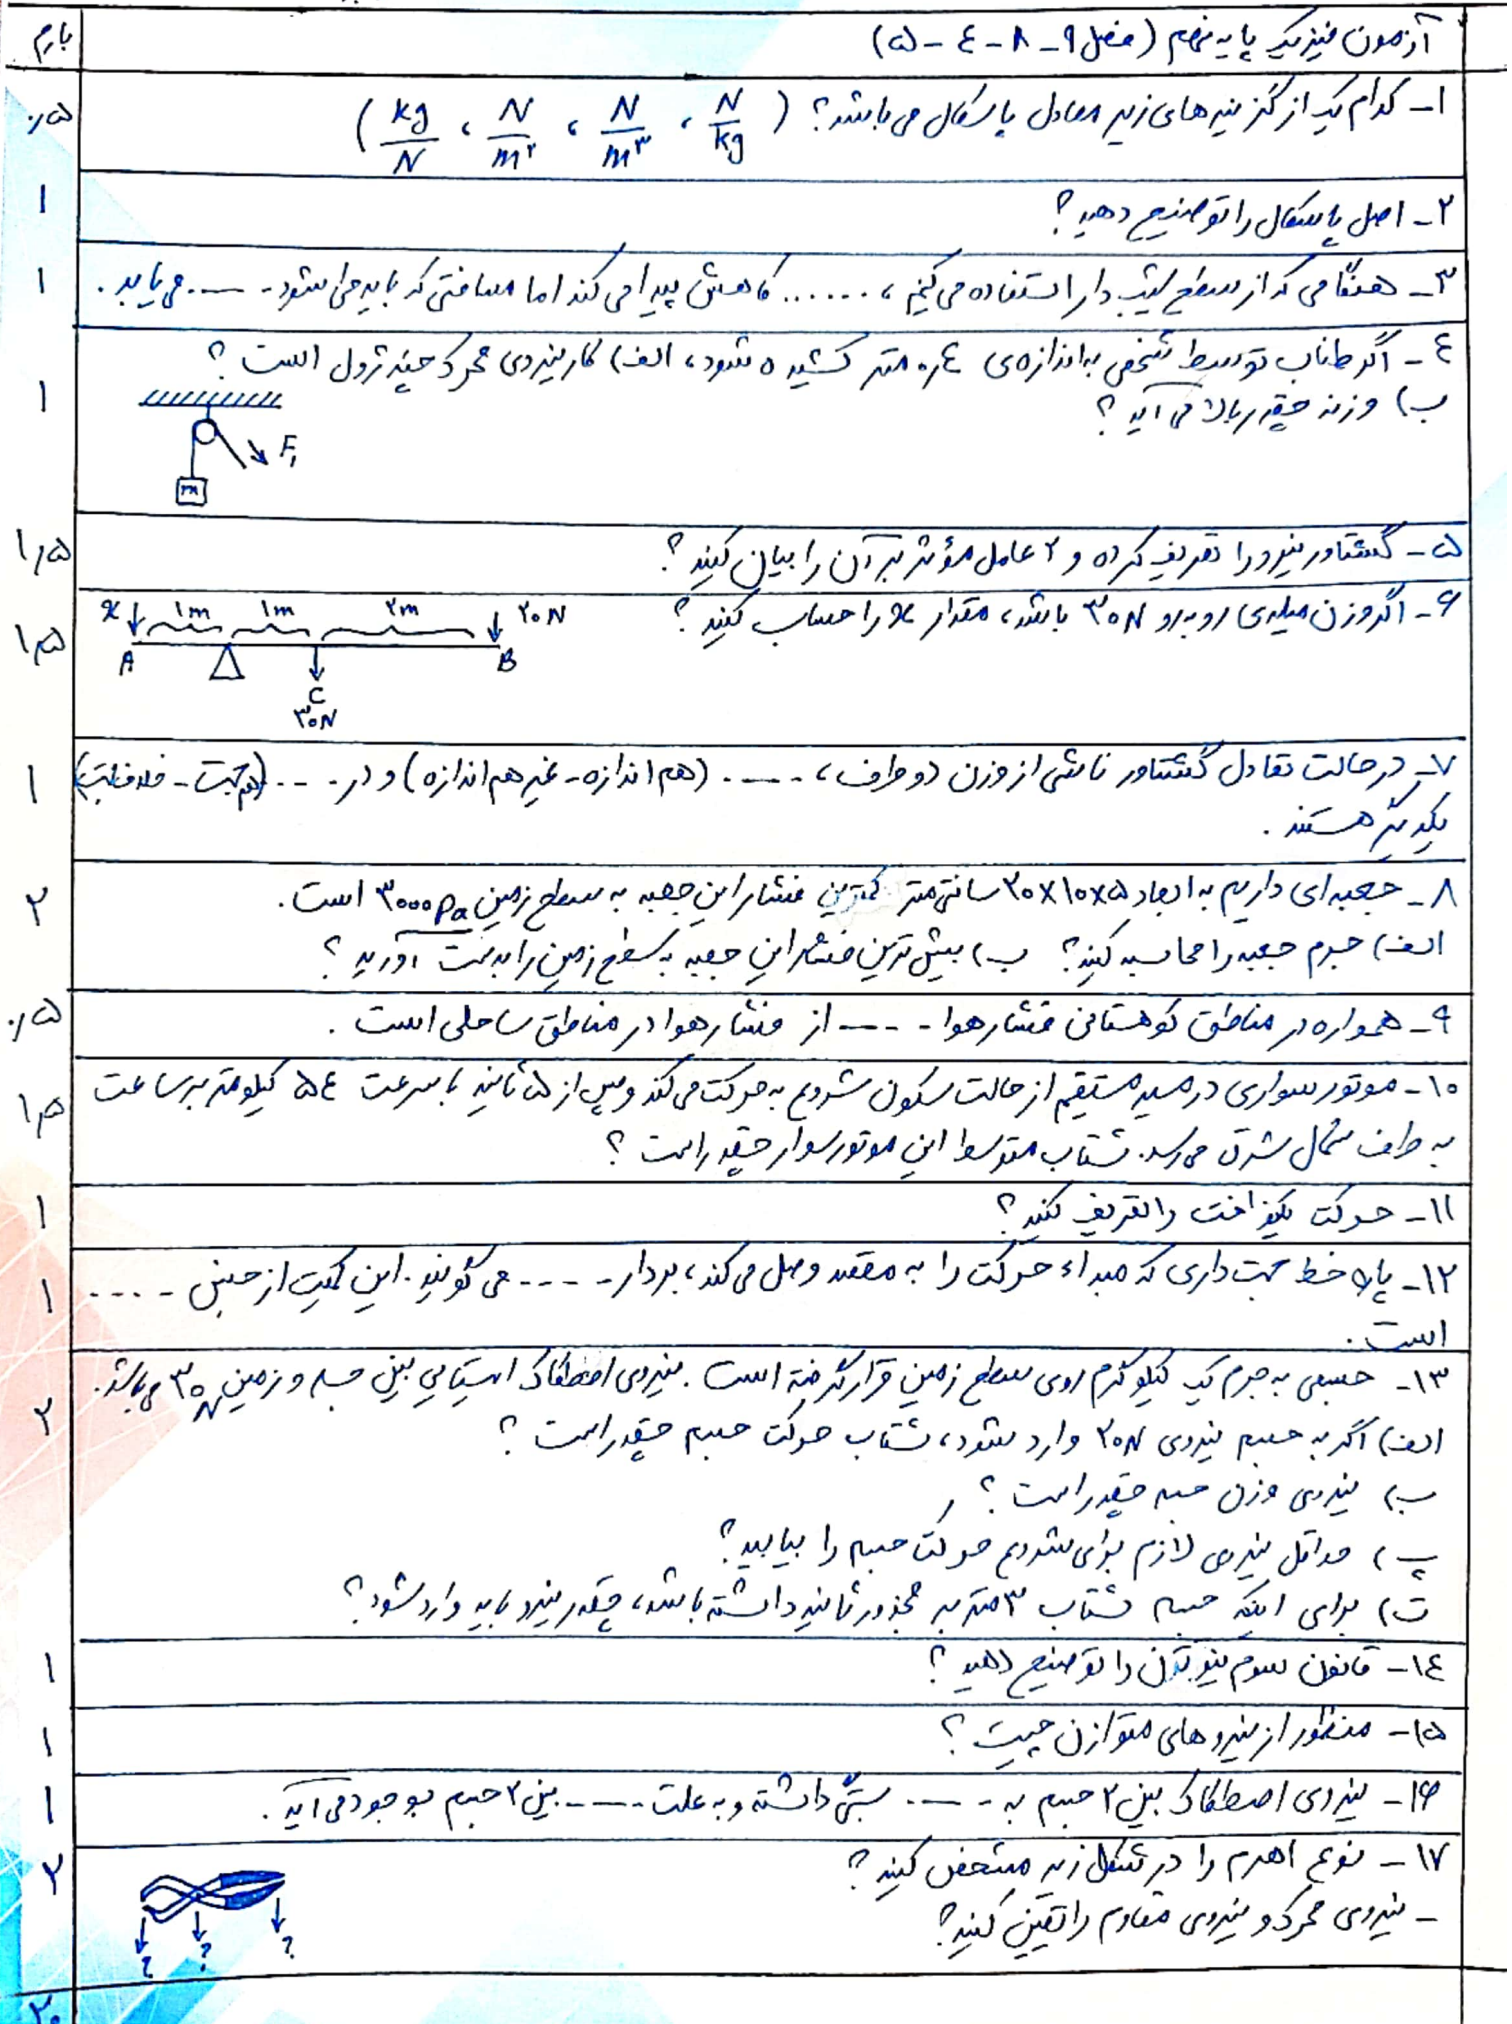 بارم
آزمون فیزیک پایه نهم (فصل ۹ - ۸ - ٤ - ۵)
۱- کدام یک از گزینه های زیر معادل پاسکال می باشد؟ ( N/kg ، N/m³ ، N/m² ، kg/N )
۰٫۵
۲- اصل پاسکال را توضیح دهید؟
۱
۳- هنگامی که از سطح شیب دار استفاده می کنیم ، ....... کاهش پیدا می کند اما مسافتی که باید طی شود ..... می یابد .
۱
٤- اگر طناب توسط شخصی به اندازه ی ٠٫٤ متر کشیده شود، الف) کار نیروی محرک چند ژول است ؟
ب) وزنه چقدر بالا می آید ؟
۱
F₁
m
۵- گشتاور نیرو را تعریف کرده و ۲ عامل مؤثر بر آن را بیان کنید ؟
۱٫۵
۶- اگر وزن میله ی روبه رو ۳۰N باشد، مقدار x را حساب کنید ؟
۱٫۵
x ۱m ۱m ۲m ۲۰N
A C B
۳۰N
۷- در حالت تعادل گشتاور ناشی از وزن دو طرف ، ..... (هم اندازه - غیر هم اندازه) و در .... (هم جهت - خلاف جهت)
یکدیگر هستند .
۱
۸- جعبه ای داریم به ابعاد ۲۰×۱۰×۵ سانتی متر کمترین فشار این جعبه به سطح زمین ۳۰۰۰Pa است .
الف) جرم جعبه را محاسبه کنید؟ ب) بیش ترین فشار این جعبه به سطح زمین را بدست آورید ؟
۲
۹- همواره در مناطق کوهستانی فشار هوا ..... از فشار هوا در مناطق ساحلی است .
۰٫۵
۱۰- موتور سواری در مسیر مستقیم از حالت سکون شروع به حرکت می کند و پس از ۵ ثانیه با سرعت ۵٤ کیلومتر بر ساعت
به طرف شمال شرق می رسد. شتاب متوسط این موتور سوار چقدر است ؟
۱٫۵
۱۱- حرکت یکنواخت را تعریف کنید؟
۱
۱۲- پاره خط جهت داری که مبداء حرکت را به مقصد وصل می کند ، بردار ..... می گویند . این کمیت از جنس .....
است .
۱
۱۳- جسمی به جرم یک کیلوگرم روی سطح زمین قرار گرفته است . نیروی اصطکاک ایستایی بین جسم و زمین ۳۰N می باشد.
الف) اگر به جسم نیروی ۲۰N وارد شود، شتاب حرکت جسم چقدر است ؟
ب) نیروی وزن جسم چقدر است ؟
پ) حداقل نیروی لازم برای شروع حرکت جسم را بیابید؟
ت) برای اینکه جسم شتاب ۳ متر بر مجذور ثانیه داشته باشد ، چقدر نیرو باید وارد شود ؟
۲
۱٤- قانون سوم نیوتن را توضیح دهید ؟
۱
۱۵- منظور از نیروهای متوازن چیست ؟
۱
۱۶- نیروی اصطکاک بین ۲ جسم به ..... بستگی داشته و به علت ..... بین ۲ جسم بوجود می آید .
۱
۱۷- نوع اهرم را در شکل زیر مشخص کنید ؟
- نیروی محرک و نیروی مقاوم را تعیین کنید؟
۲
? ? ?
۲۰